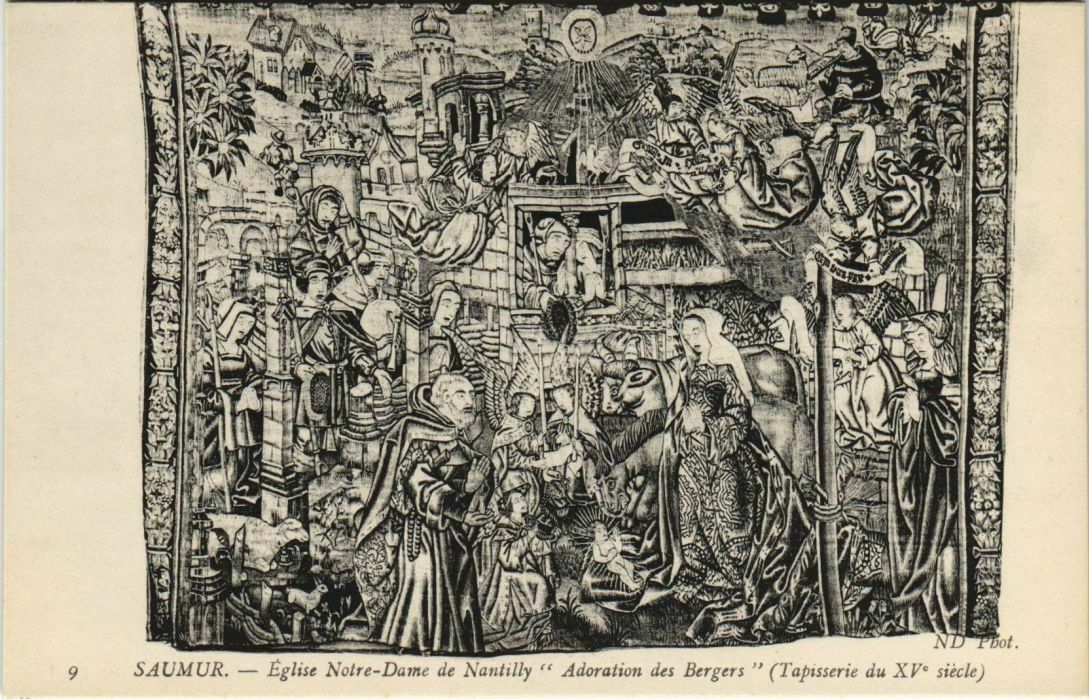 ND Phot.
9 SAUMUR. — Église Notre-Dame de Nantilly “ Adoration des Bergers ” (Tapisserie du XVe siècle)